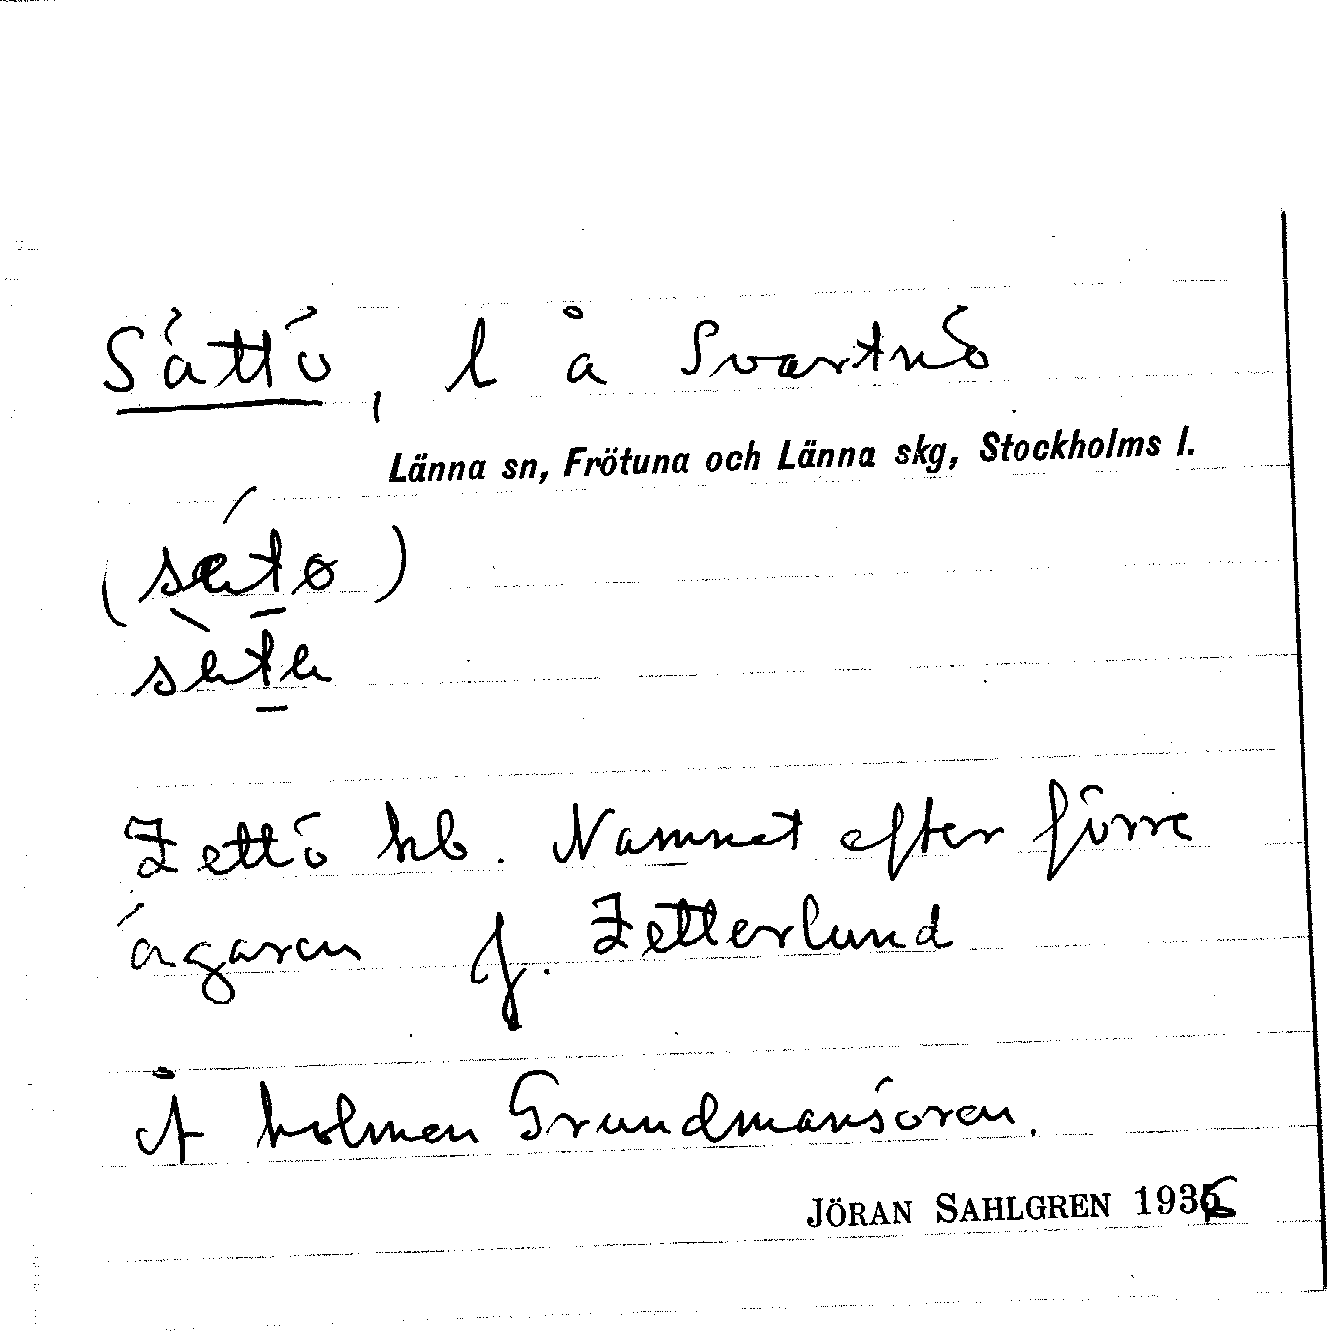 Sättö, l å Svartnö
Länna sn, Frötuna och Länna skg, Stockholms l.
(sätø)
Zettö kb. Namnet efter förre
ägaren J. Zetterlund
Å holmen Grundmansören.
JÖRAN SAHLGREN 1936